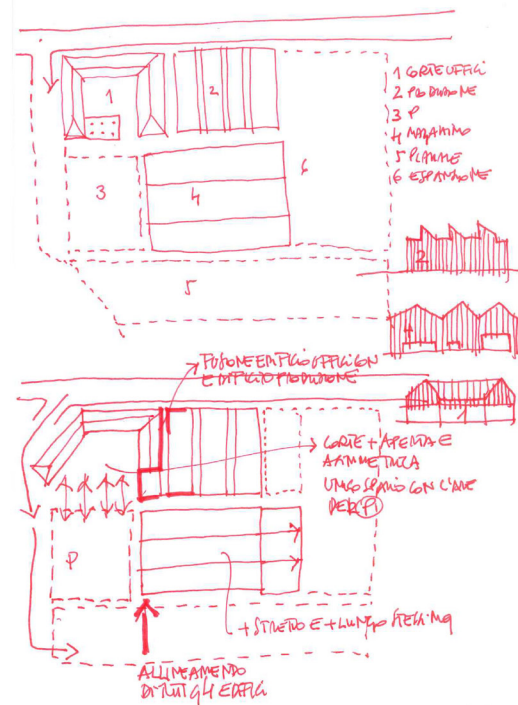 1 CORTE UFFICI
2 PRODUZIONE
3 P
4 MAGAZZINO
5 PIAZZALE
6 ESPANSIONE
1
2
3
4
6
5
2
4
1
FUSIONE EDIFICIO UFFICI CON
EDIFICIO PRODUZIONE
CORTE + APERTA E
ASIMMETRICA
UNICO SPAZIO CON L'AREA
DEL P
P
+ STRETTO E + LUNGO STESSI MQ
ALLINEAMENTO
DI TUTTI GLI EDIFICI